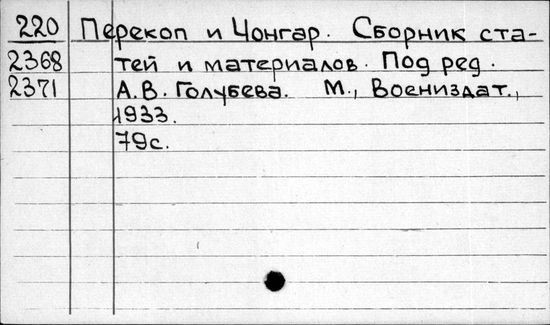 220 Перекоп и Чонгар. Сборник ста-
2368 тей и материалов. Под ред.
2371 А.В. Голубева. М., Воениздат.,
1933.
79с.